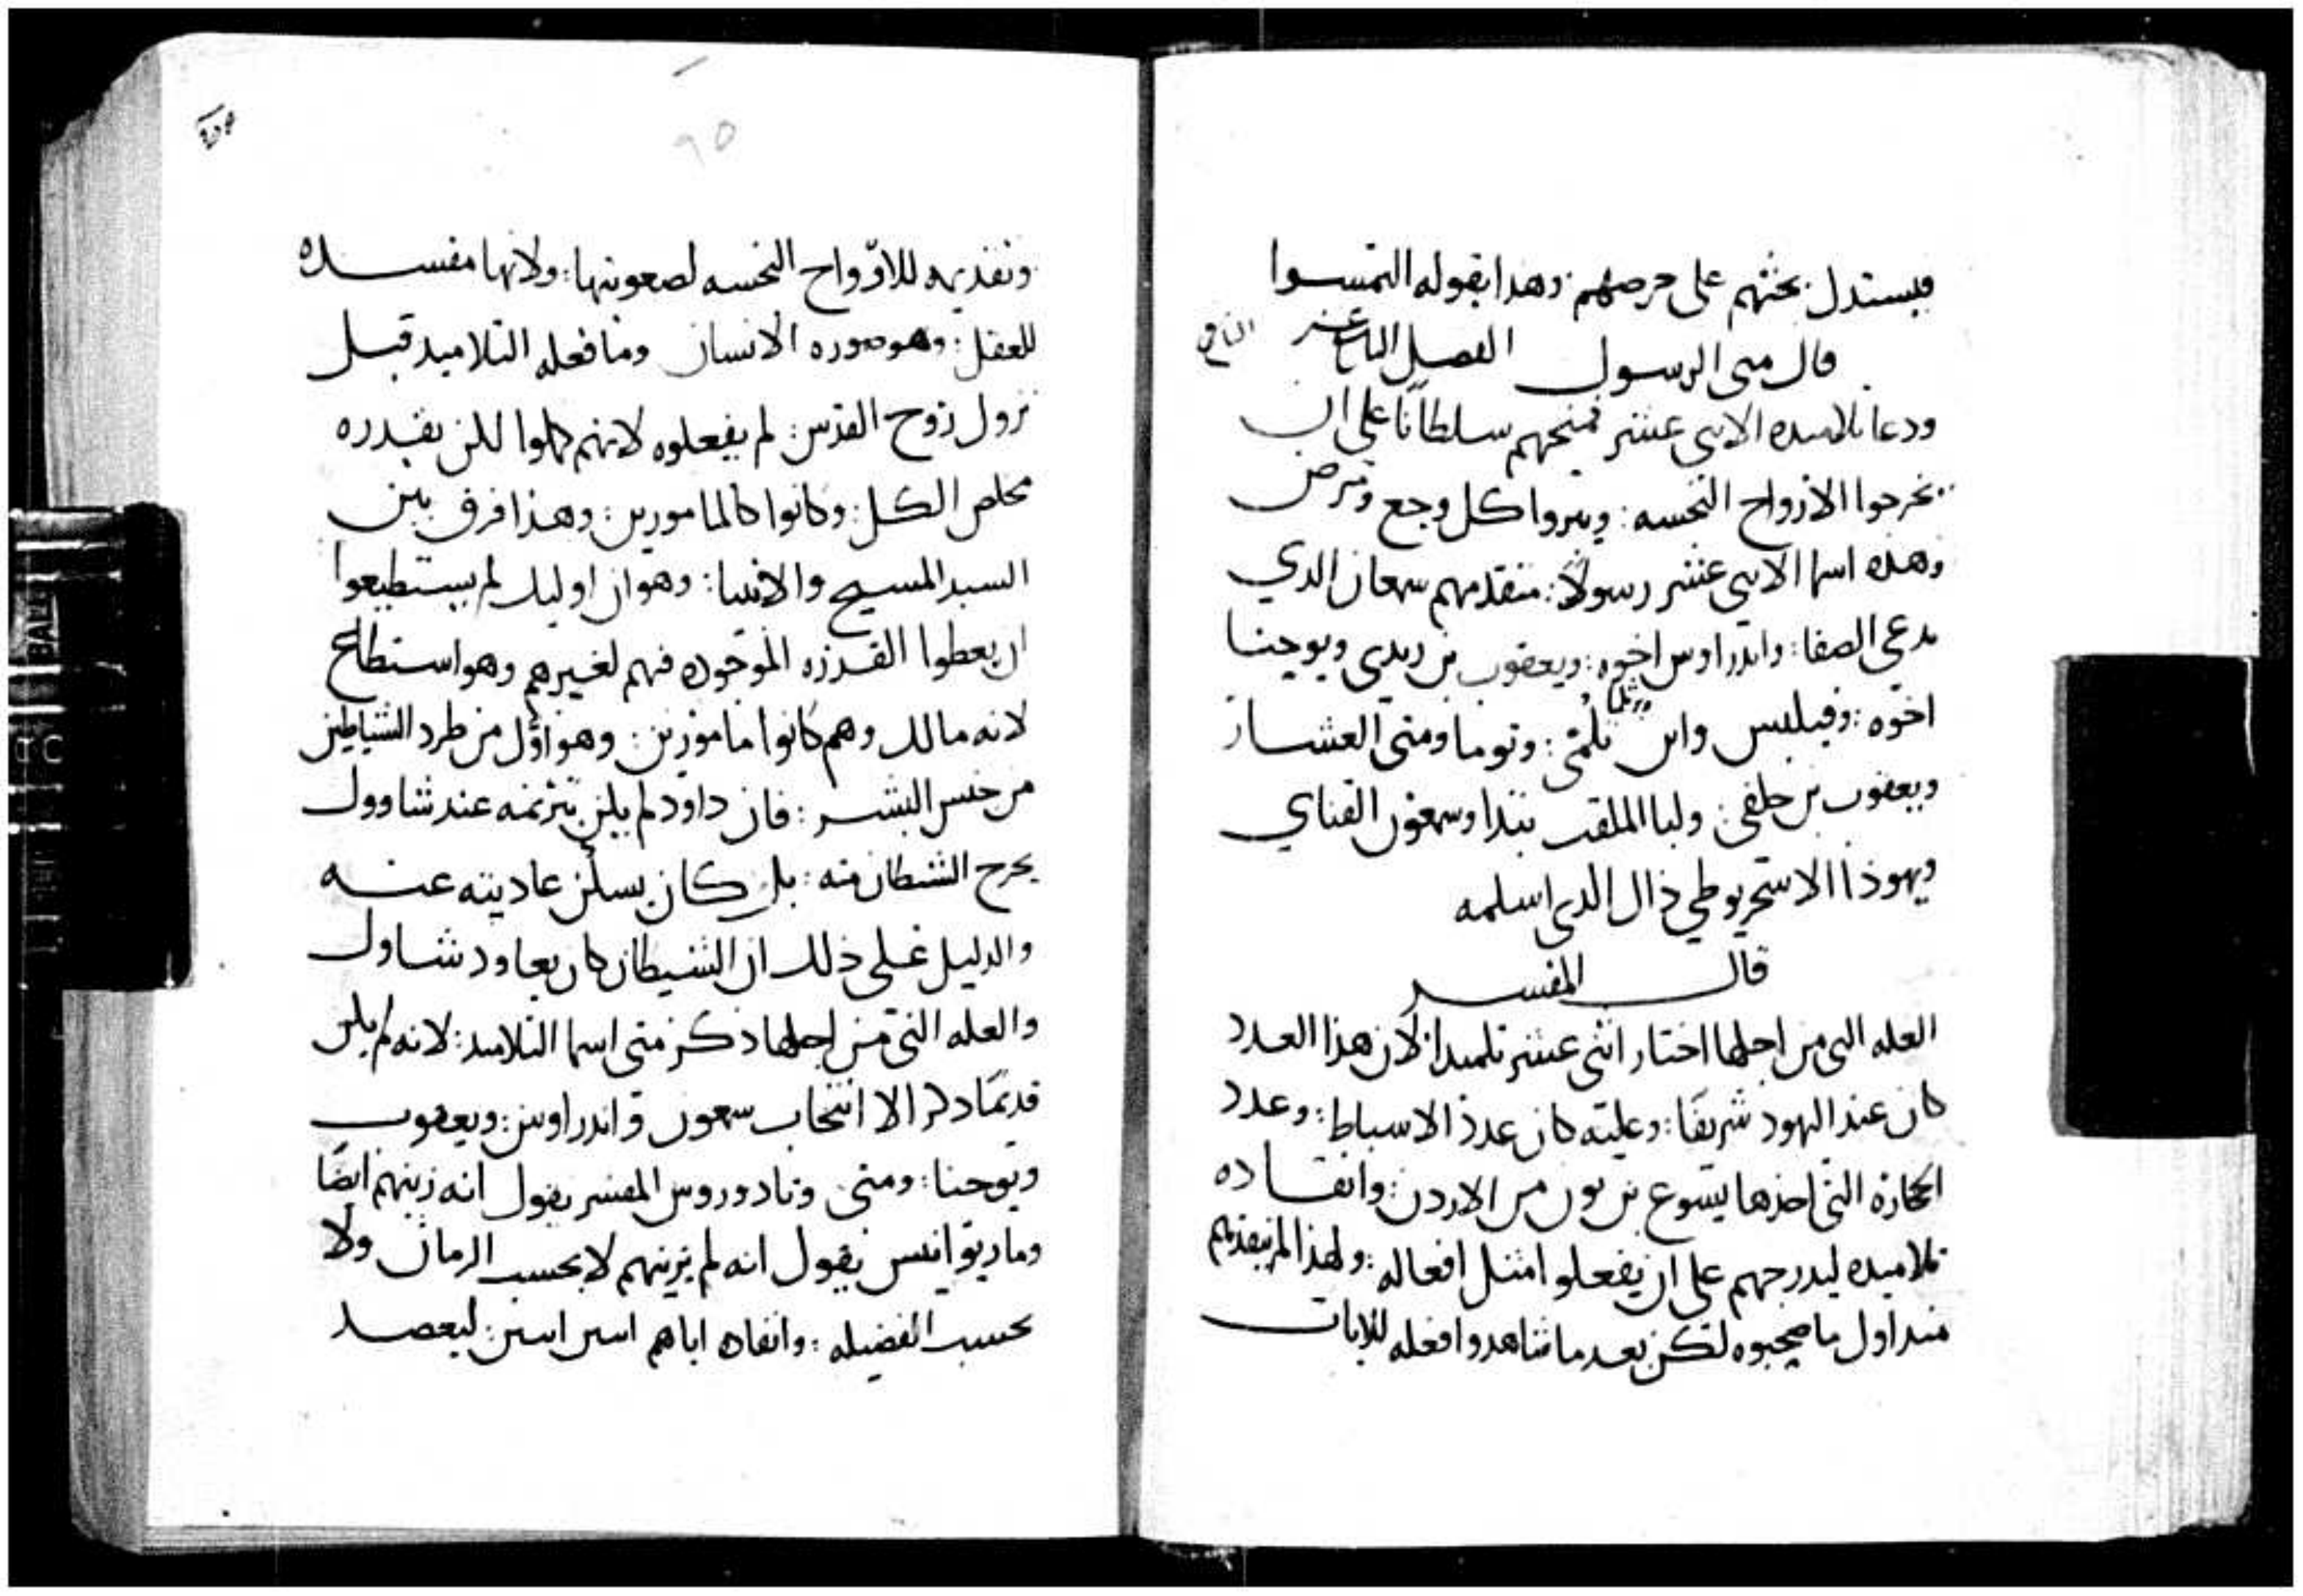 فيستدل بحثهم على حرصهم: وهدا بقوله التمسوا
قال متى الرسول الفصل التاسع عشر
ودعا تلاميده الاثنى عشر فمنحهم سلطانًا على ان
يخرجوا الارواح النجسه: ويبروا كل وجع ومرض
وهده اسما الاثنى عشر رسولاً: متقدمهم سمعان الدي
يدعى الصفا: واندراوس اخوه: ويعقوب بن زبدي ويوحنا
اخوه: وفيلبس وابن تلمى: وتوما ومتى العشار
ويعقوب بن حلفى: ولبا الملقب بتدا وسمعون القناي
ويهوذا الاسخريوطي ذاك الدي اسلمه
قال المفسر
العله التى من اجلها اختار اثنى عشر تلميدا لان هذا العدد
كان عند اليهود شريفًا: وعليه كان عدد الاسباط: وعدد
الحجارة التى اخذها يشوع بن نون من الاردن: وانفاده
تلاميده ليدرجهم على ان يفعلوا مثل افعاله: ولهذا لم ينفذهم
منداول ما صحبوه لكن بعد ما شاهدوا فعله للايات
٩٥
وتقديمه للارواح النجسه لصعوبتها: ولانها مفسده
للعقل: وهو صوره الانسان وما فعله التلاميد قبل
نزول روح القدس: لم يفعلوه لانهم كملوا لكن بقدره
مخلص الكل: وكانوا كالمامورين: وهذا فرق بين
السيد المسيح والانبيا: وهو ان اوليك لم يستطيعوا
ان يعطوا القدره الموجوده فيهم لغيرهم وهو استطاع
لانه مالك وهم كانوا مامورين: وهو اول من طرد الشياطين
من جنس البشر: فان داود لم يكن بترنمه عند شاوول
يخرج الشيطان منه: بل كان يسكن عاديته عنه
والدليل على ذلك ان الشيطان كان يعاود شاول
والعله التى من اجلها ذكر متى اسما التلاميد: لانه لم يكن
قديمًا دكر الا انتخاب سمعون واندراوس: ويعقوب
ويوحنا: ومتى وتادوروس المفسر يقول انه رتبهم ايضًا
وماريوانيس يقول انه لم يرتبهم لا بحسب الزمان ولا
بحسب الفضيله: وانفاده اياهم اثنين اثنين: ليعضد